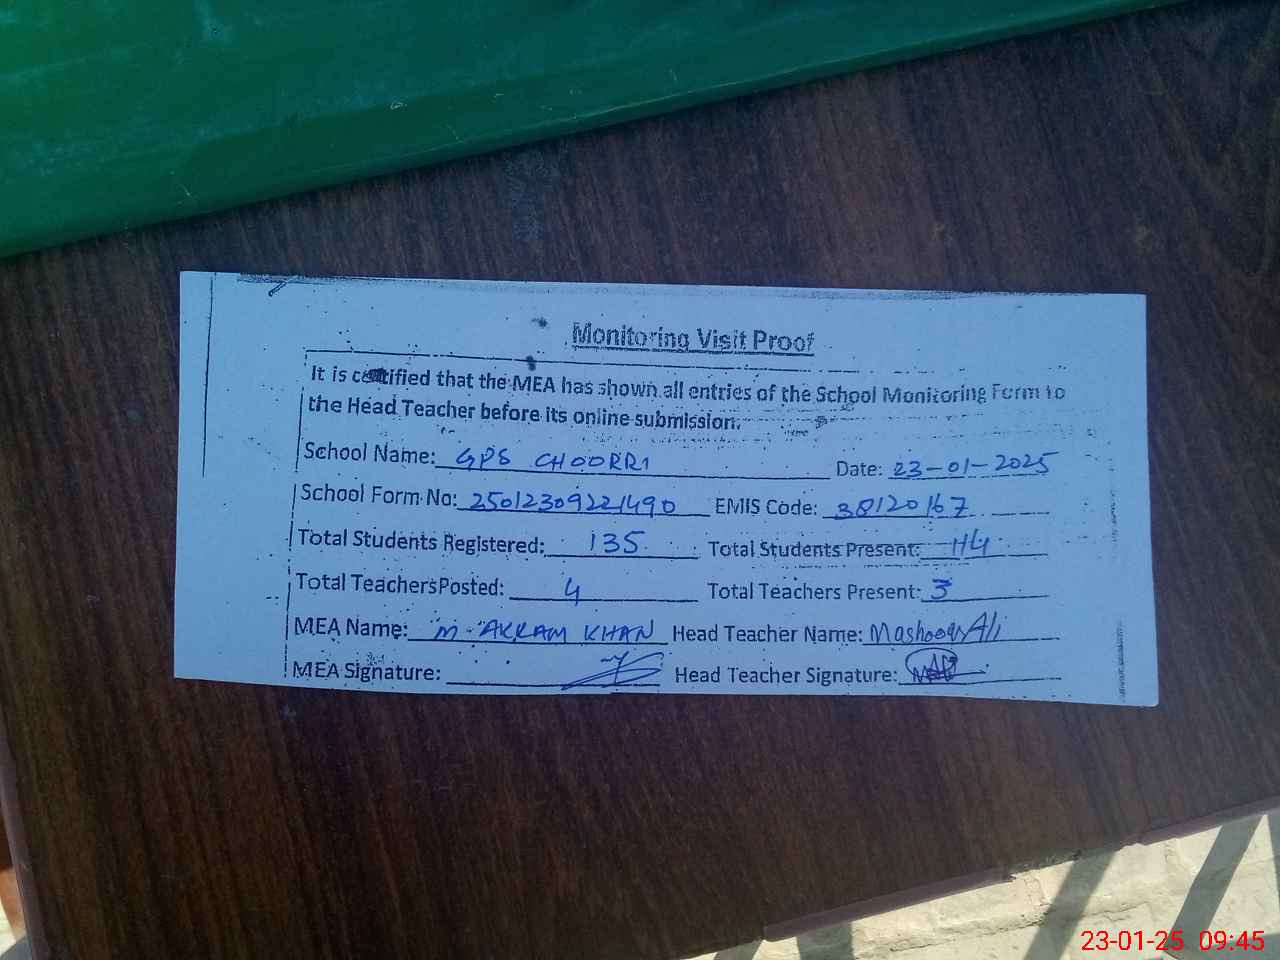 Monitoring Visit Proof
It is certified that the MEA has shown all entries of the School Monitoring Form to
the Head Teacher before its online submission.
School Name: GPS CHOORRI Date: 23-01-2025
School Form No: 25012309221490 EMIS Code: 38120167
Total Students Registered: 135 Total Students Present: 114
Total Teachers Posted: 4 Total Teachers Present: 3
MEA Name: M. AKRAM KHAN Head Teacher Name: Mashooq Ali
MEA Signature: Head Teacher Signature:
23-01-25 09:45